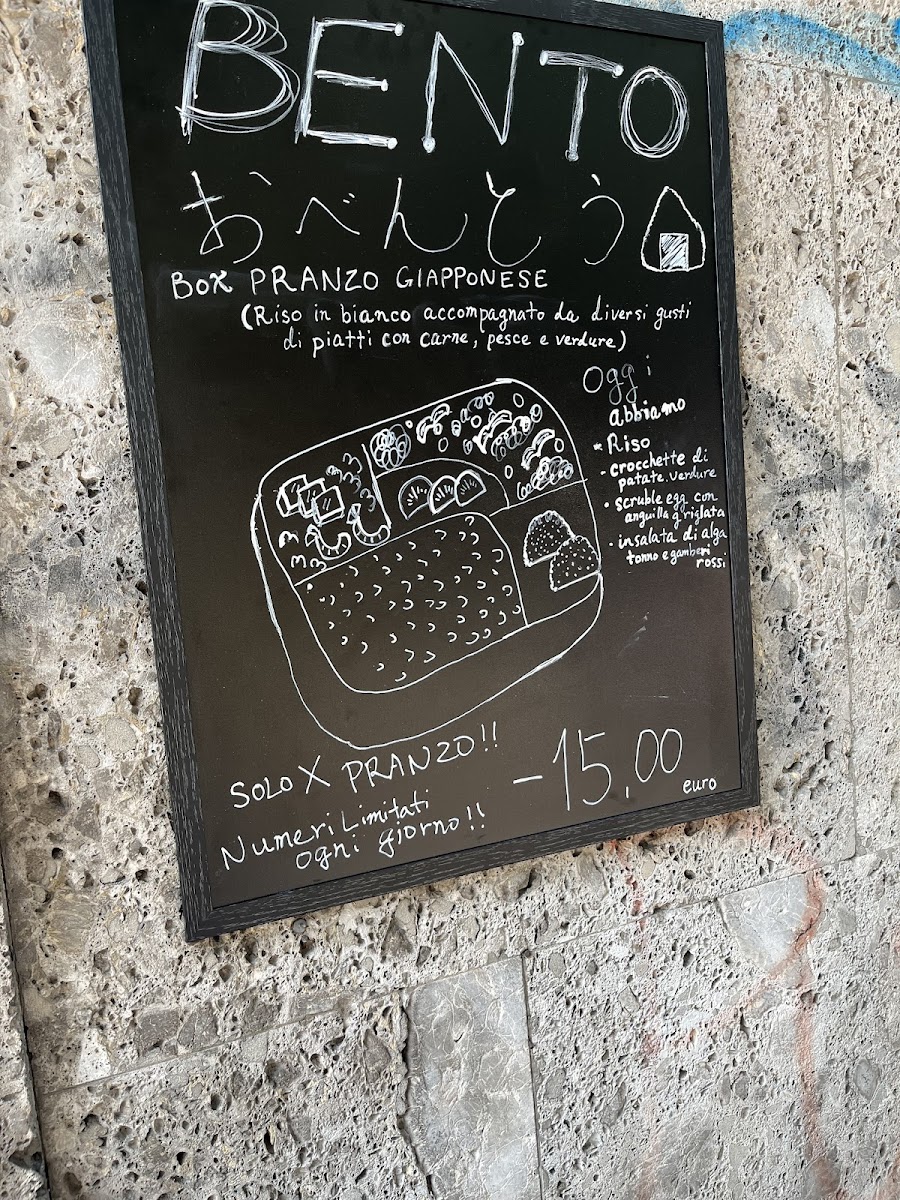 BENTO
おべんとう
BOX PRANZO GIAPPONESE
(Riso in bianco accompagnato da diversi gusti
di piatti con carne, pesce e verdure)
Oggi
abbiamo
* Riso
- crocchette di
patate.verdure
• scruble egg con
anguilla grigliata
• insalata di alga
tonno e gamberi
rossi
SOLO X PRANZO!!
Numeri Limitati
ogni giorno!!
-15,00
euro